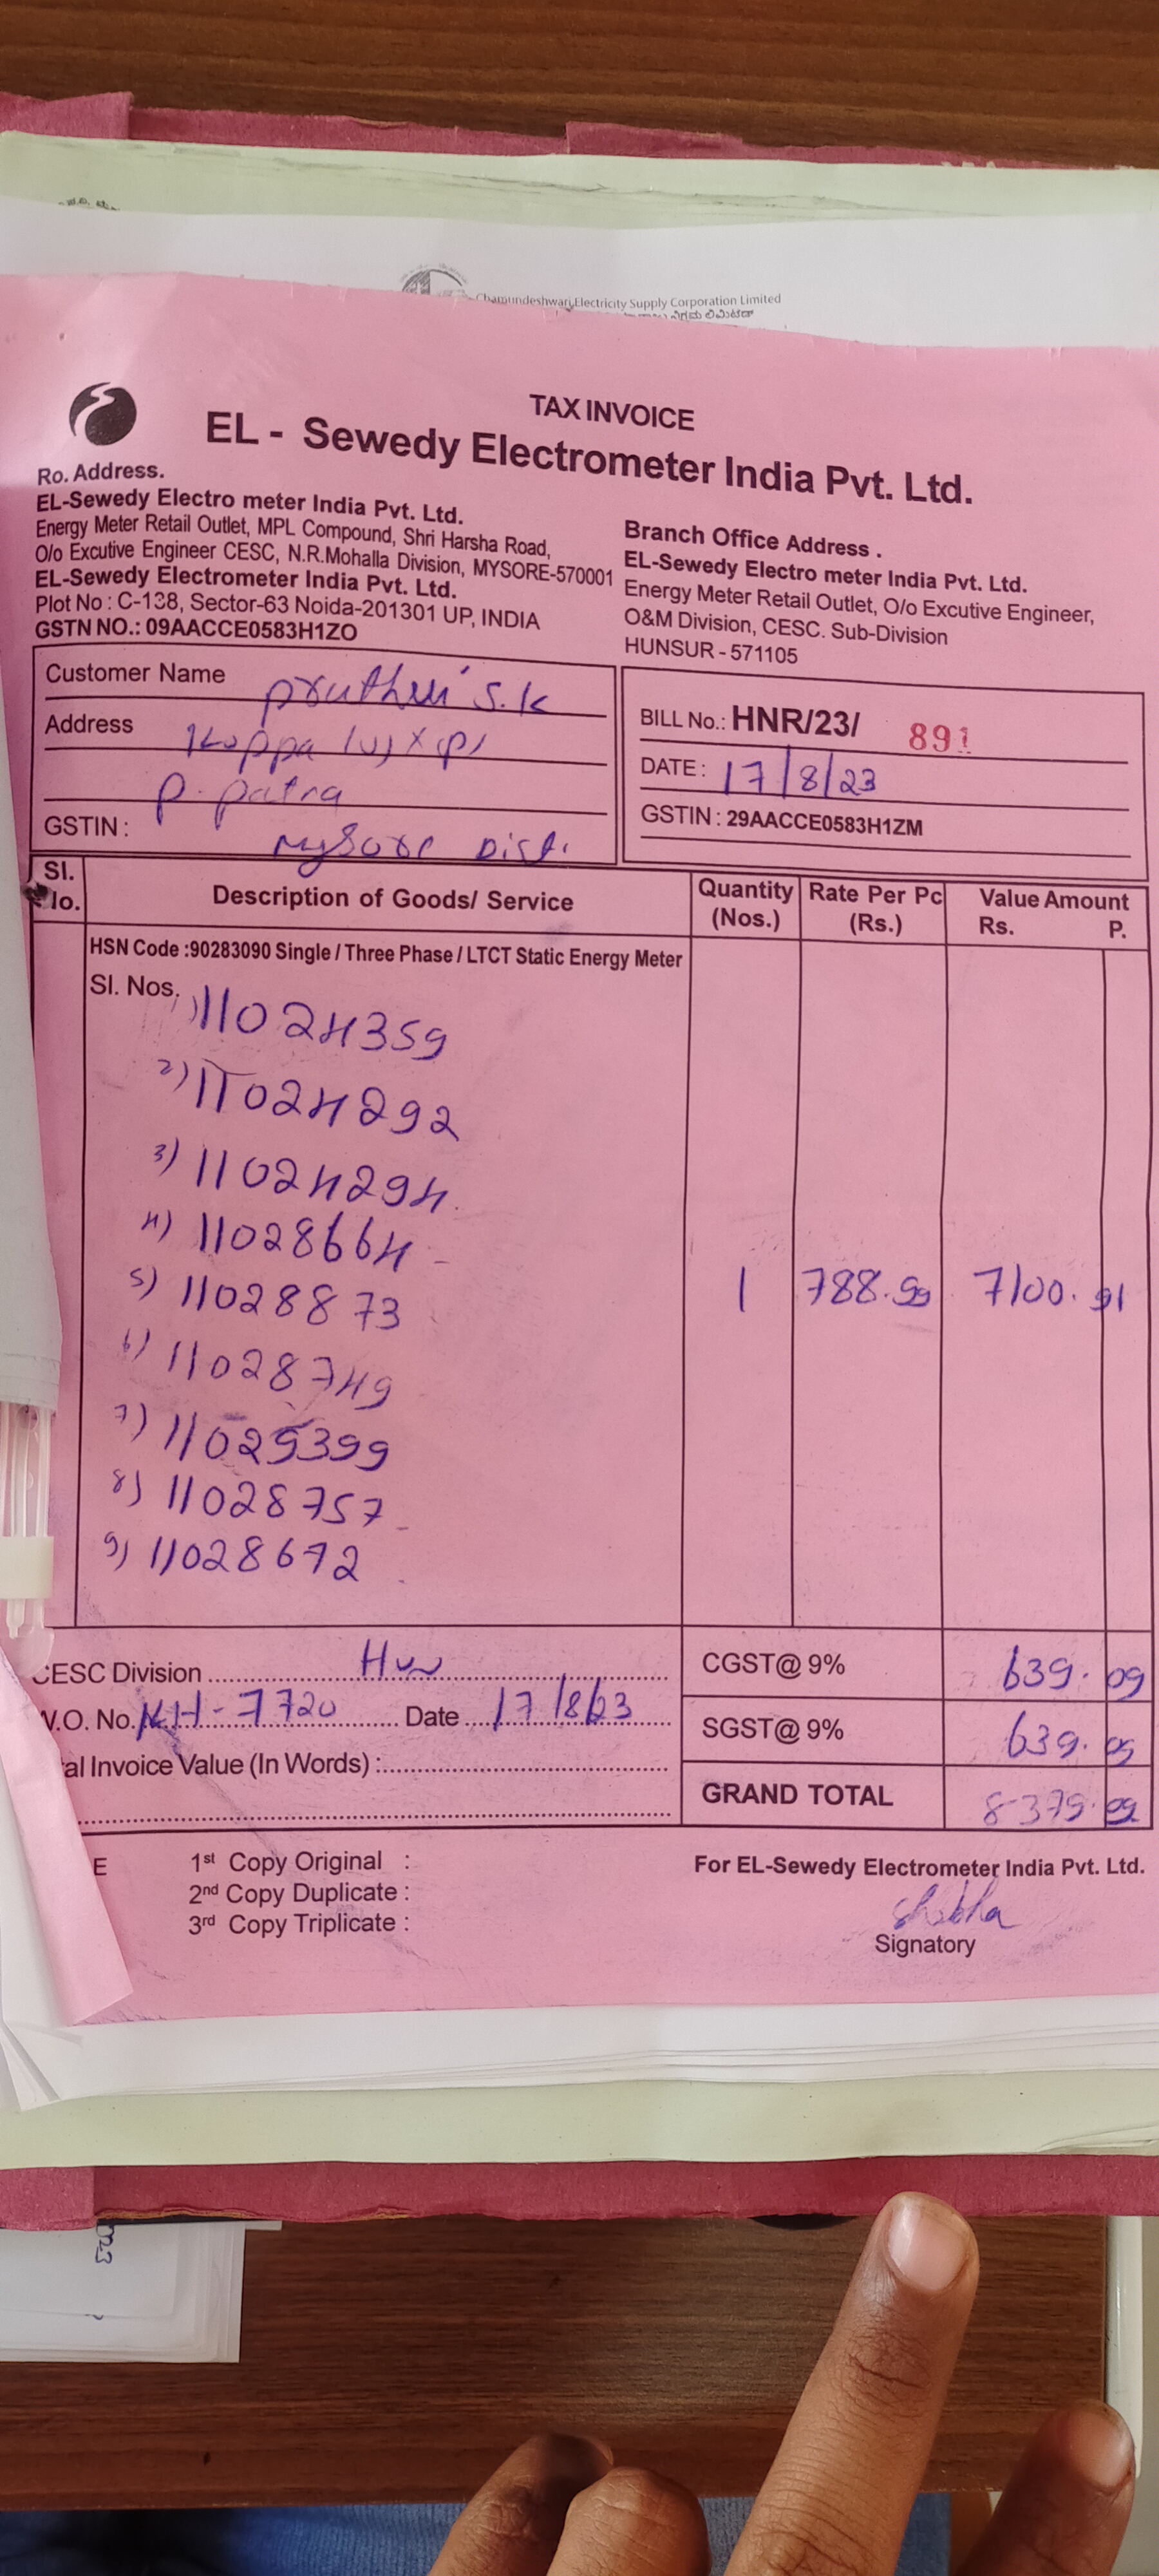 Chamundeshwari Electricity Supply Corporation Limited
TAX INVOICE
EL - Sewedy Electrometer India Pvt. Ltd.
Ro. Address.
EL-Sewedy Electro meter India Pvt. Ltd.
Energy Meter Retail Outlet, MPL Compound, Shri Harsha Road,
O/o Excutive Engineer CESC, N.R.Mohalla Division, MYSORE-570001
EL-Sewedy Electrometer India Pvt. Ltd.
Plot No : C-138, Sector-63 Noida-201301 UP, INDIA
GSTN NO.: 09AACCE0583H1ZO
Branch Office Address .
EL-Sewedy Electro meter India Pvt. Ltd.
Energy Meter Retail Outlet, O/o Excutive Engineer,
O&M Division, CESC. Sub-Division
HUNSUR - 571105
Customer Name pruthvi S.K
Address Koppa (v) x (p)
P. patna
GSTIN : Mysore Dist.
BILL No.: HNR/23/ 891
DATE : 17/8/23
GSTIN : 29AACCE0583H1ZM
Sl. Description of Goods/ Service Quantity (Nos.) Rate Per Pc (Rs.) Value Amount Rs. P.
HSN Code :90283090 Single / Three Phase / LTCT Static Energy Meter
Sl. Nos. 1) 11024359
2) 11024292
3) 11024294
4) 11028664
5) 11028873 1 788.99 7100.91
6) 11028749
7) 11025399
8) 11028757
9) 11028672
CESC Division Hun
W.O. No. KH-7720 Date 17/8/23
al Invoice Value (In Words) :
CGST@ 9% 639.09
SGST@ 9% 639.09
GRAND TOTAL 8379.09
E 1st Copy Original :
2nd Copy Duplicate :
3rd Copy Triplicate :
For EL-Sewedy Electrometer India Pvt. Ltd.
Shobha
Signatory